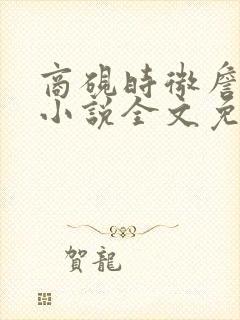 商硯時微詹
小說全文免
賀龍